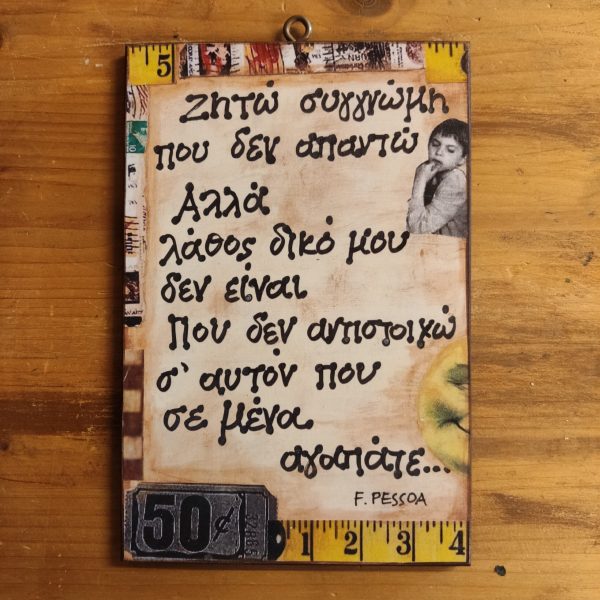 5
Ζητώ συγγνώμη
που δεν απαντώ
Αλλά
λάθος δικό μου
δεν είναι
Που δεν αντιστοιχώ
σ' αυτόν που
σε μένα
αγαπάτε...
F. PESSOA
50¢
1 2 3 4